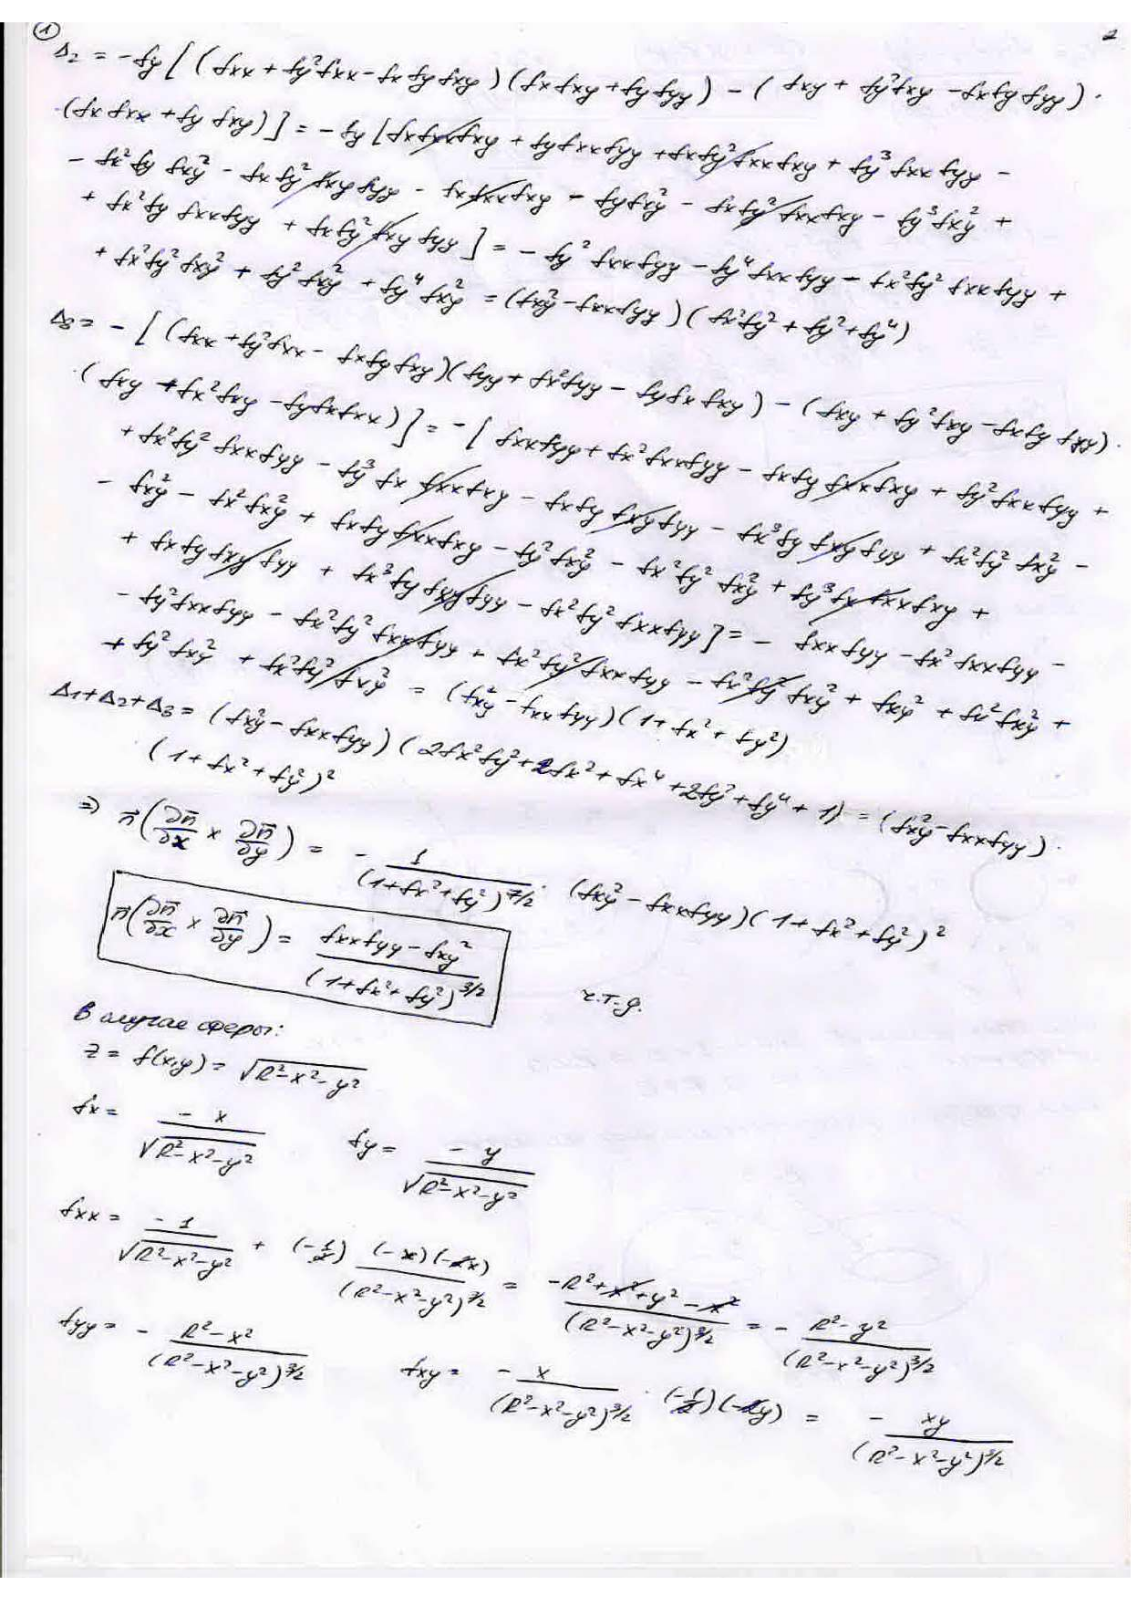 ① 2
Δ₂ = -fy [ (fxx + fy²fxx - fx fy fxy ) (fx fxy + fy fyy) - ( fxy + fy²fxy - fx fy fyy ) ·
·(fx fxx + fy fxy) ] = - fy [ fx fxx fxy + fy fxx fyy + fx fy² fxx fxy + fy³ fxx fyy -
- fx² fy fxy² - fx fy² fxy fyy - fx fxx fxy - fy fxy² - fx fy² fxx fxy - fy³ fxy² +
+ fx² fy fxx fyy + fx fy² fxy fyy ] = - fy² fxx fyy - fy⁴ fxx fyy - fx² fy² fxx fyy +
+ fx² fy² fxy² + fy² fxy² + fy⁴ fxy² = (fxy² - fxx fyy ) ( fx² fy² + fy² + fy⁴)
Δ₃ = - [ (fxx + fy² fxx - fx fy fxy)(fyy + fx² fyy - fy fx fxy ) - (fxy + fy² fxy - fx fy fyy) ·
·( fxy + fx² fxy - fy fx fxx ) ] = - [ fxx fyy + fx² fxx fyy - fx fy fxx fxy + fy² fxx fyy +
+ fx² fy² fxx fyy - fy³ fx fxx fxy - fx fy fxy fyy - fx³ fy fxy fyy + fx² fy² fxy² -
- fxy² - fx² fxy² + fx fy fxx fxy - fy² fxy² - fx² fy² fxy² + fy³ fx fxx fxy +
+ fx fy fxy fyy + fx³ fy fxy fyy - fx² fy² fxx fyy ] = - fxx fyy - fx² fxx fyy -
- fy² fxx fyy - fx² fy² fxx fyy + fx² fy² fxx fyy - fx² fy² fxy² + fxy² + fx² fxy² +
+ fy² fxy² + fx² fy² fxy² = (fxy² - fxx fyy) (1 + fx² + fy²)
Δ₁ + Δ₂ + Δ₃ = (fxy² - fxx fyy ) ( 2fx² fy² + 2fx² + fx⁴ + 2fy² + fy⁴ + 1) = (fxy² - fxx fyy) ·
(1 + fx² + fy²)²
⇒ n⃗(∂n⃗/∂x × ∂n⃗/∂y) = - 1/(1+fx²+fy²)^7/2 · (fxy² - fxx fyy)(1 + fx² + fy²)²
n⃗(∂n⃗/∂x × ∂n⃗/∂y) = (fxx fyy - fxy²)/(1+fx²+fy²)^3/2
ч.т.д.
В случае сферы:
z = f(x,y) = √(R²-x²-y²)
fx = - x/√(R²-x²-y²) fy = - y/√(R²-x²-y²)
fxx = - 1/√(R²-x²-y²) + (-1/2) (-x)(-2x)/(R²-x²-y²)^3/2 = (-R²+x²+y²-x²)/(R²-x²-y²)^3/2 = - (R²-y²)/(R²-x²-y²)^3/2
fyy = - (R²-x²)/(R²-x²-y²)^3/2 fxy = - x/(R²-x²-y²)^3/2 · (-1/2)(-2y) = - xy/(R²-x²-y²)^3/2